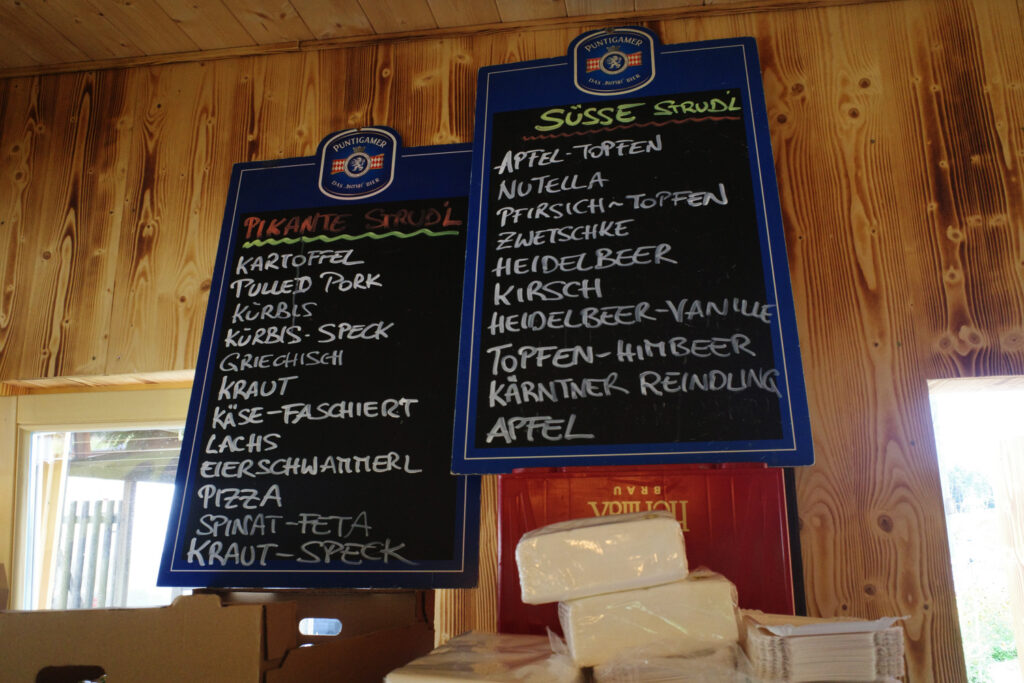 PUNTIGAMER
DAS „BIERIGE“ BIER
PIKANTE STRUD'L
KARTOFFEL
PULLED PORK
KÜRBIS
KÜRBIS-SPECK
GRIECHISCH
KRAUT
KÄSE-FASCHIERT
LACHS
EIERSCHWAMMERL
PIZZA
SPINAT-FETA
KRAUT-SPECK
PUNTIGAMER
DAS „BIERIGE“ BIER
SÜSSE STRUD'L
APFEL-TOPFEN
NUTELLA
PFIRSICH-TOPFEN
ZWETSCHKE
HEIDELBEER
KIRSCH
HEIDELBEER-VANILLE
TOPFEN-HIMBEER
KÄRNTNER REINDLING
APFEL
BRÄU